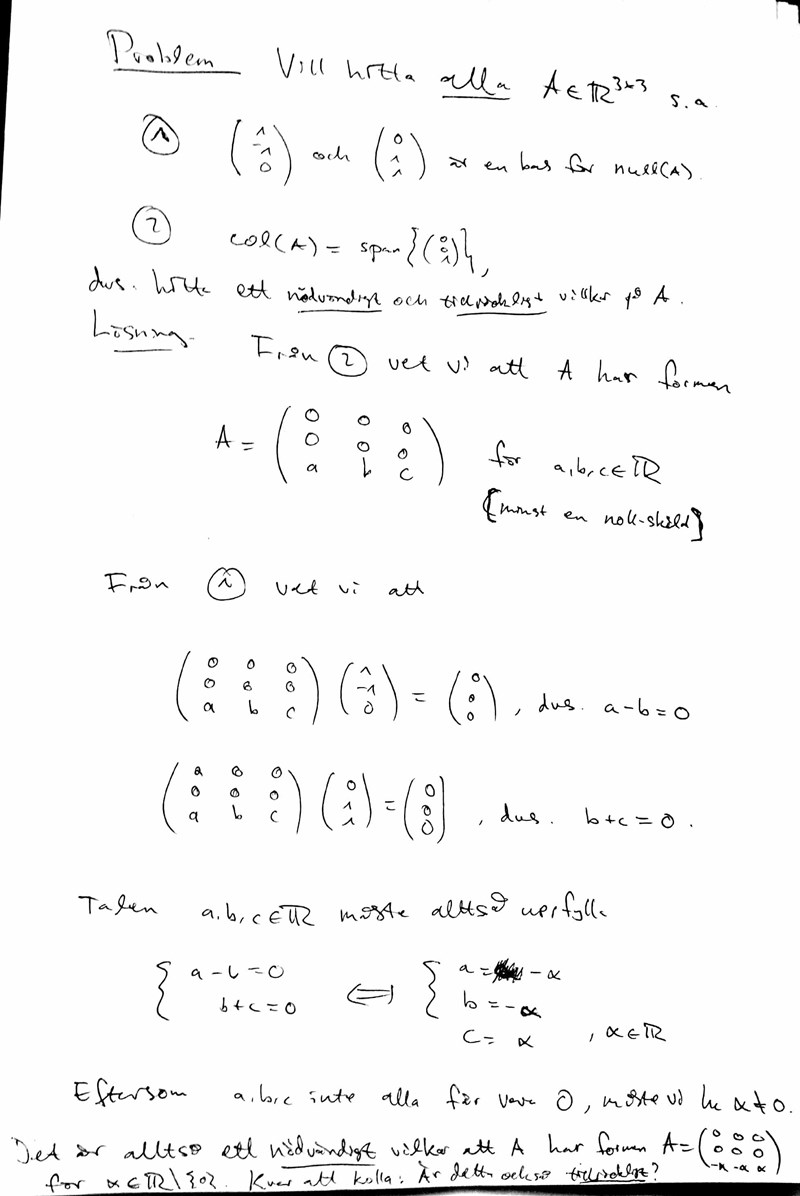 Problem Vill hitta alla A ∈ ℝ^{3×3} s.a.
① (1 -1 0) och (0 1 1) är en bas för null(A).
② col(A) = span{(0 0 1)},
dvs. hitta ett nödvändigt och tillräckligt villkor på A.
Lösning. Från ② vet vi att A har formen
A = (0 0 0; 0 0 0; a b c) för a,b,c ∈ ℝ
[minst en noll-skild]
Från ① vet vi att
(0 0 0; 0 0 0; a b c) (1 -1 0) = (0 0 0), dvs. a-b=0
(0 0 0; 0 0 0; a b c) (0 1 1) = (0 0 0), dvs. b+c=0.
Talen a,b,c ∈ ℝ måste alltså uppfylla
{ a-b=0 ⟺ { a= -α
b+c=0 b=-α
c= α , α∈ℝ
Eftersom a,b,c inte alla får vara 0, måste vi ha α≠0.
Det är alltså ett nödvändigt villkor att A har formen A=(0 0 0; 0 0 0; -α -α α)
för α∈ℝ\{0}. Kvar att kolla: Är detta också tillräckligt?